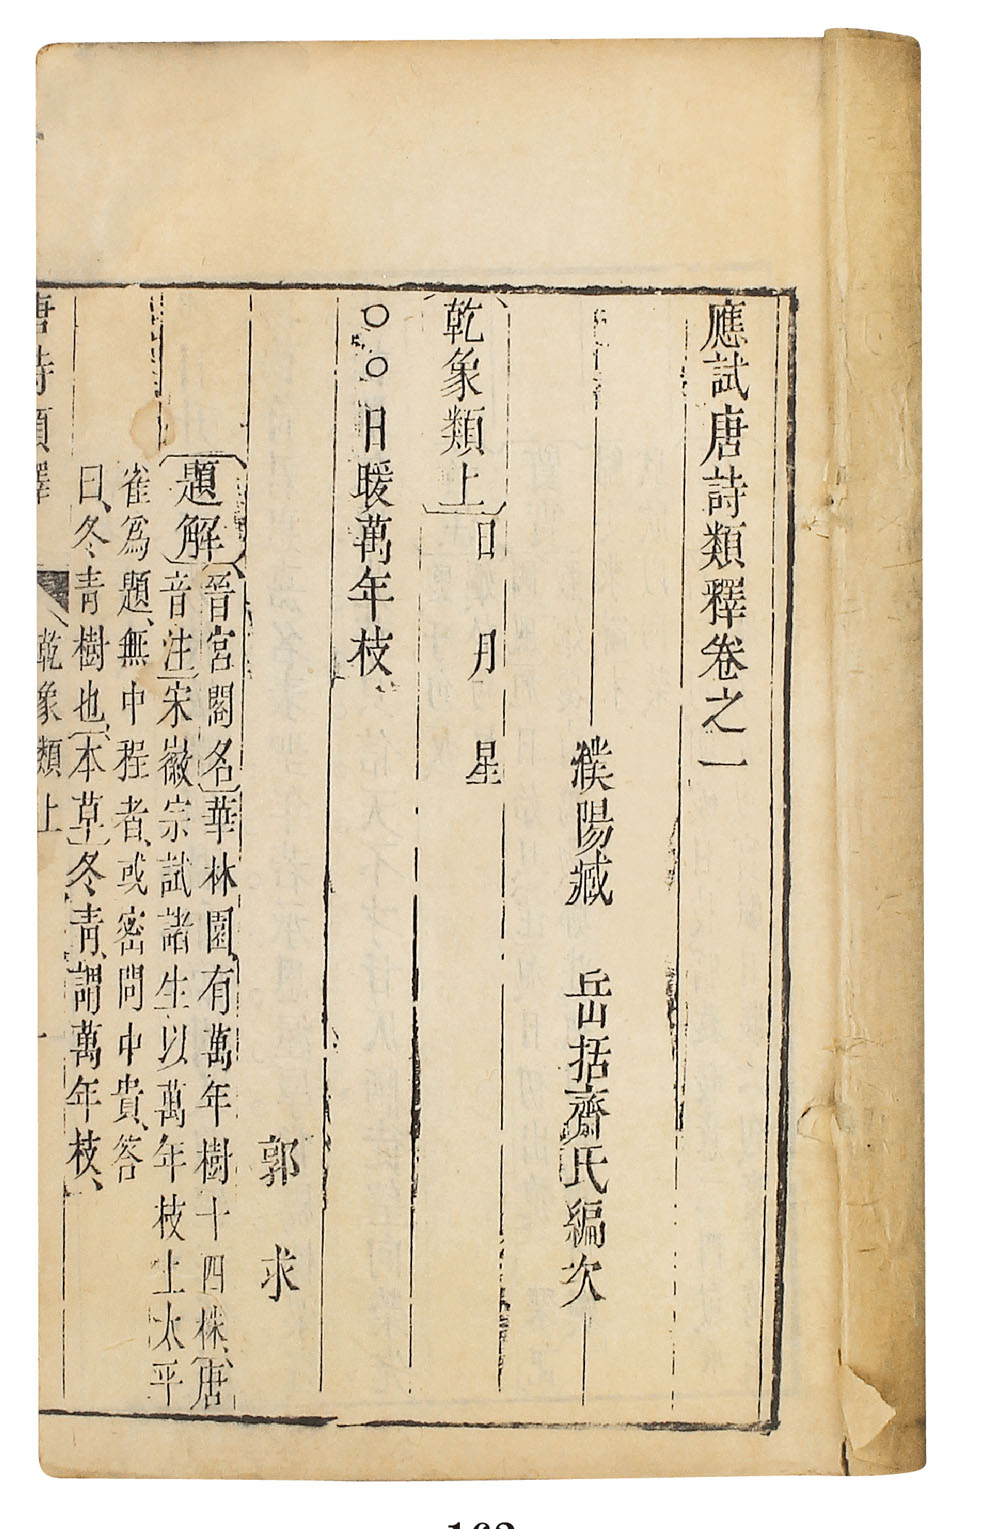 應試唐詩類釋卷之一
濮陽臧 岳括齋氏編次
乾象類上 日 月 星
○○日暖萬年枝
郭 求
題解 晉宮閣名華林園有萬年樹十四株唐
音注宋徽宗試諸生以萬年枝上太平
雀爲題無中程者或密問中貴答
曰冬青樹也本草冬青謂萬年枝
唐詩類釋 乾象類上 一